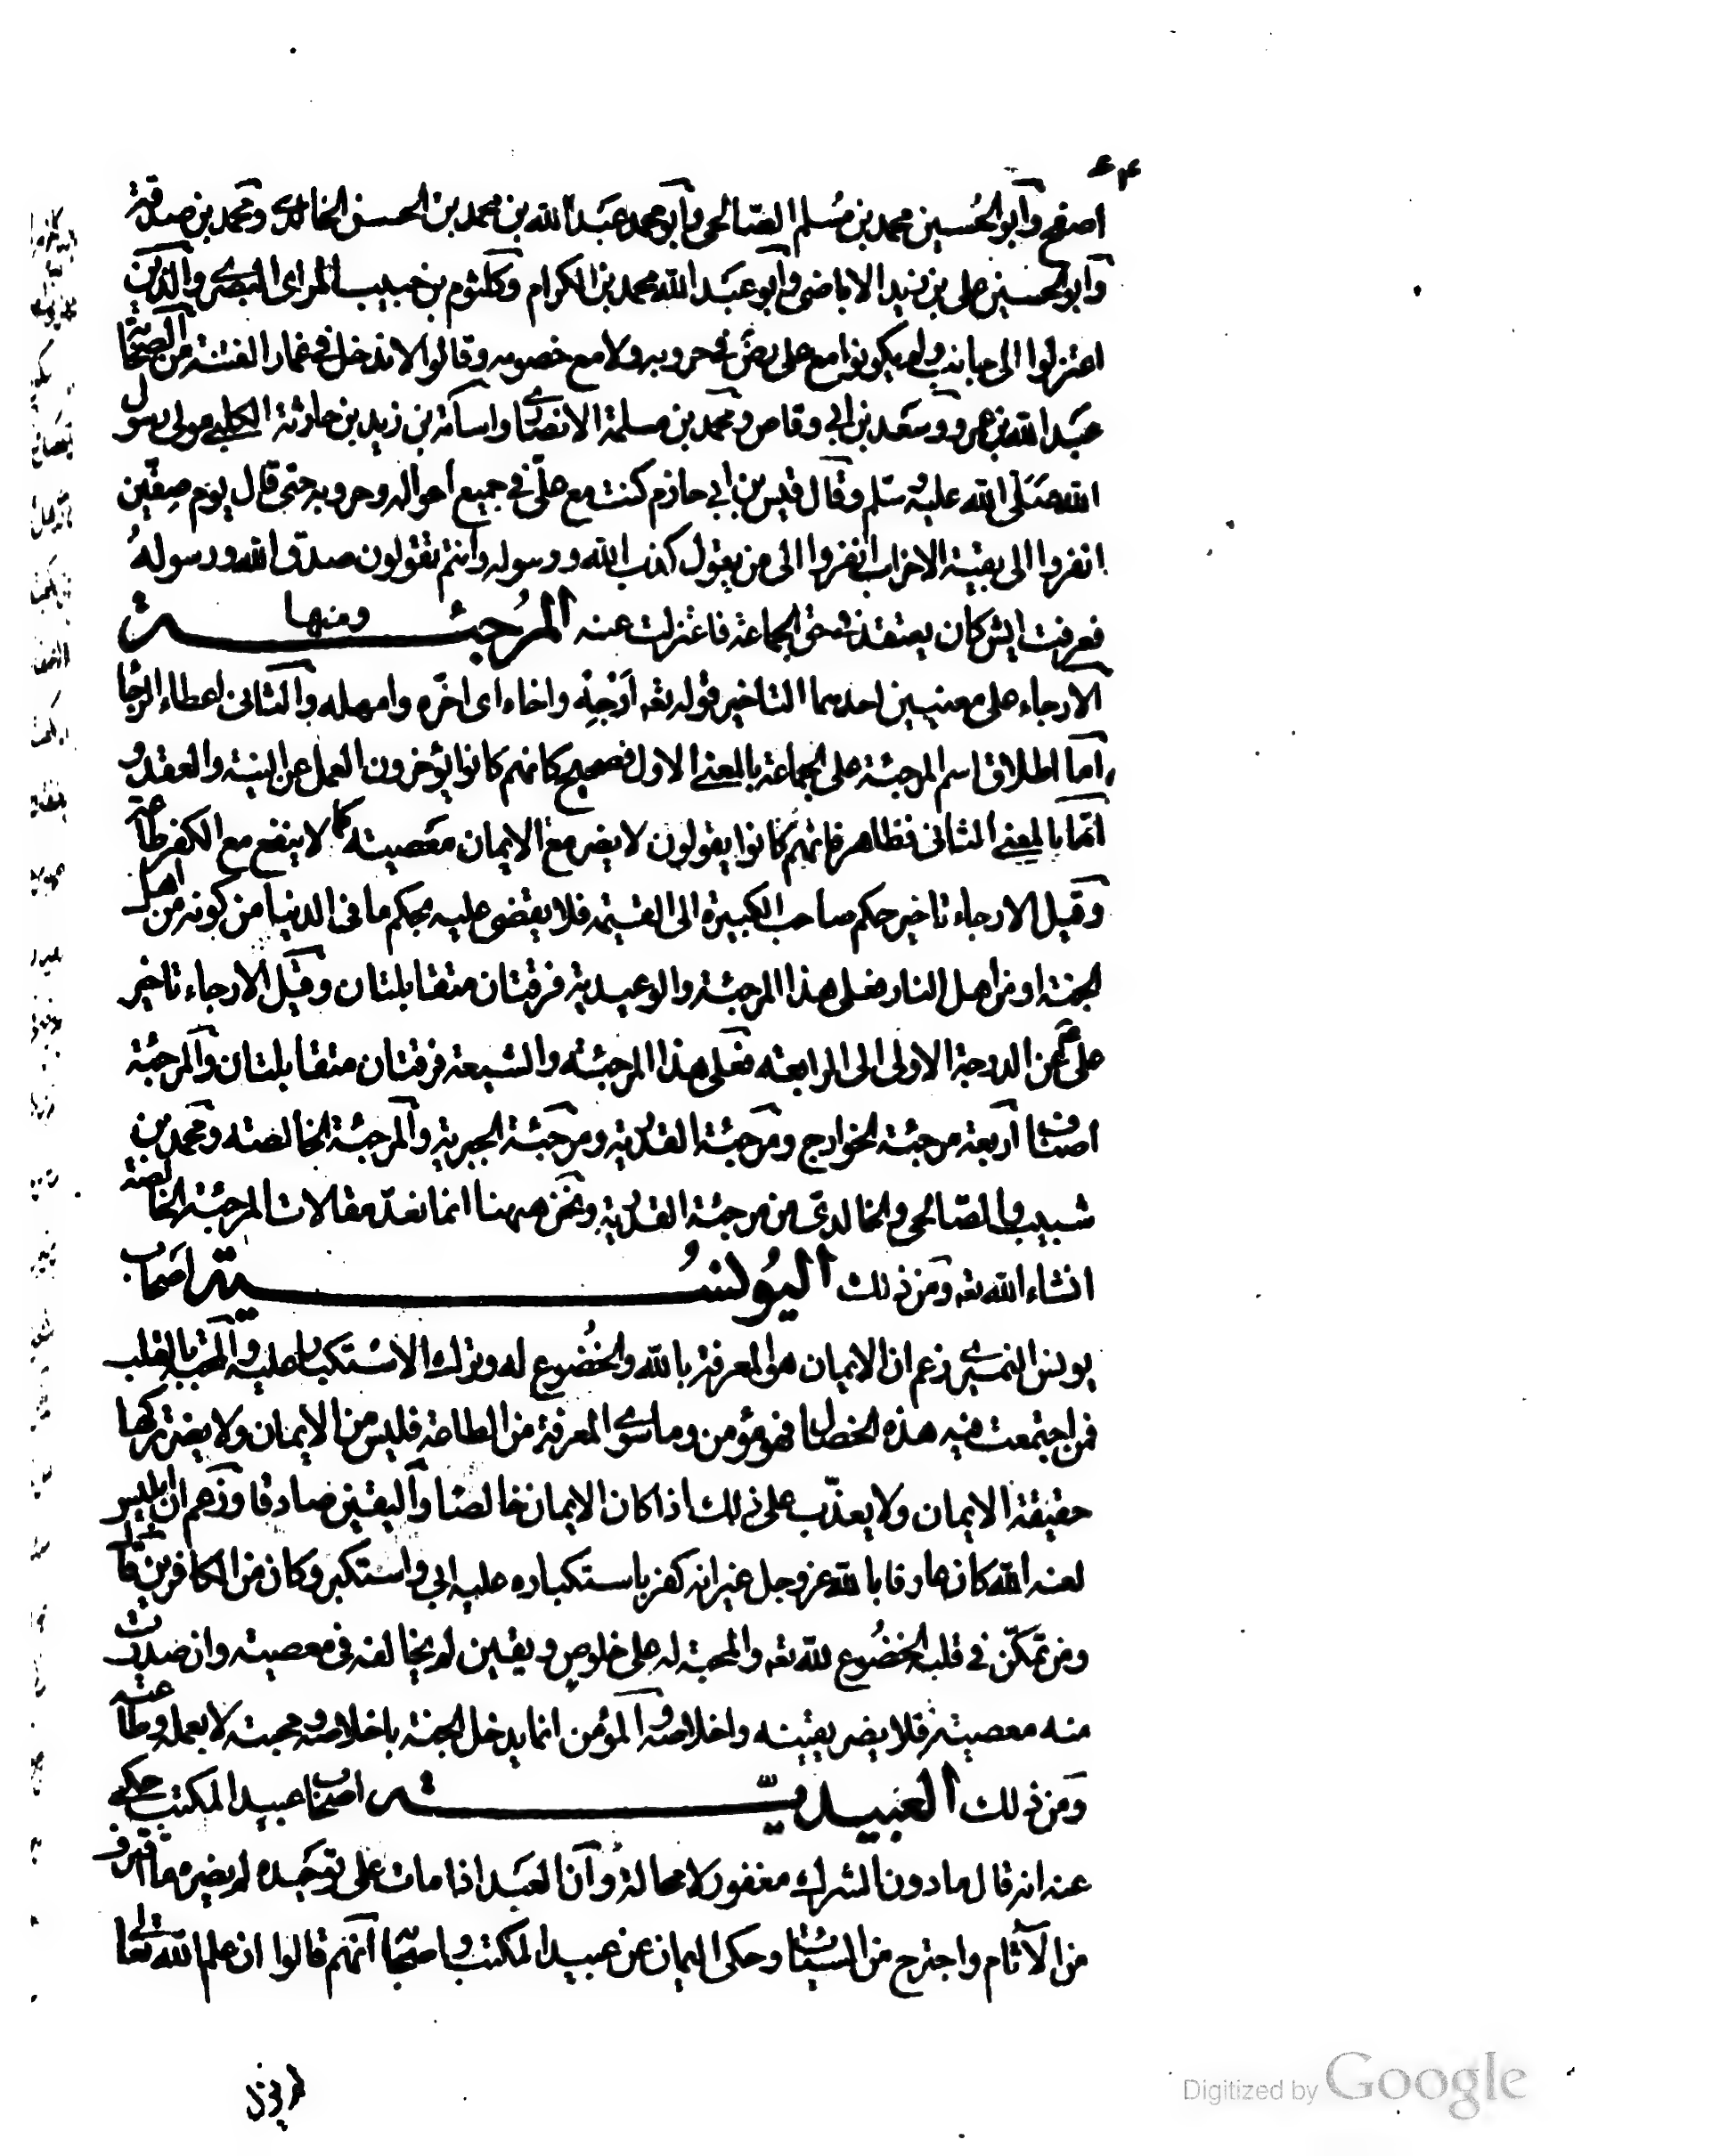 ۶۴
اصفح وابو الحُسين محمد بن مُسلم الصّالحى وابو محمد عبَد الله بن محمد بن الحسن الخالدى ومحمد بن صدقة
وابو الحسين على بن زيد الاباضى وابو عبَد الله محمد بن الكرام وكلثوم بن حبيب المراى البَصرى والذين
اعتزلوا الى جانب ولم يكونوا مع على رضَ فى حروبه ولا مع خصومه وقالوا لا ندخل فى غمار الفتنة من الصحابة
عبَد الله بن عمرو وسَعد بن ابى وقاص ومحمد بن مسلمة الانصارى واسامة بن زيد بن حارثة الكلبى مولى رسول
الله صَلى الله عليه وسَلم وقال قيس بن ابى حازم كنت مع علىّ فى جميع احواله وحروبه حتى قال يوم صِفّين
انفروا الى بقية الاحزاب انفروا الى من يقول كذب الله ورسوله وانتم تقولون صدق الله ورسولهُ
فعرفت ايش كان يعتقد فى حق الجماعة فاعتزلت عنه ومنها المُرجئة
الارجاء على معنيين احدهما التاخير قوله تعه ارْجِهْ واخاه اى اخّره وامهله والثانى اعطاء الرجا
اما اطلاق اسم المرجئة على الجماعة بالمعنى الاول فصحيح كانهم كانوا يؤخرون العمل عن النية والعقد و
امّا بالمعنى الثانى فظاهر فانهم كانوا يقولون لا يضر مع الايمان معَصيته كما لا ينفع مع الكفر طاعة
وقيل الارجاء تاخير حكم صاحب الكبيرة الى القيمه فلا يقضى عليه بحكم ما فى الدنيا من كونه من اهل
الجنة او من اهل النار فعلى هذا المرجئة والوعيدية فرقتان متقابلتان وقيل الارجاء تاخير
علىّ عن الدرجة الاولى الى الرابعه فعَلى هذا المرجئته والشيعة فرقتان متقابلتان والمرجئة
اصناف اربعة مرجئة الخوارج ومرجئة القدرية ومرجئة الجبرية والمرجئة الخالصته ومحمد بن
شبيب والصّالحى والخالدىّ من مرجئة القدرية ونحن هٰهنا انما نعدّ مقالات المرجئة الخالصة
انشاء الله تعه ومن ذلك اليُونسُية اصحاب
يونس النميرى زعم ان الايمان هو المعرفة بالله والخُضُوع له وترك الاسْتكبار عليه والمحبة بالقلب
فمن اجتمعت فيه هذه الخصال فهو مؤمن وما سوى المعرفة من الطاعة فليس من الايمان ولا يضر تركها
حقيقة الايمان ولا يعذّب على ذلك اذا كان الايمان خالصًا واليقين صادقا وزعم ان ابليس
لعنه الله كان عارفا بالله عز وجل غير انه كفر باستكباره عليه ابى واستكبر وكان من الكافرين قال
ومن تمكّن فى قلبه الخضُوع لله تعه والمحبة له على خلوصٍ ويقين لم يخالفه فى معصيته وان صدرت
منه معصيته فلا يضر بيقينه واخلاصه والمؤمن انما يدخل الجنة باخلاصه ومحبته لا بعمله وطاعته
وَمن ذلك العَبيديّة اصحاب عبيد المكتب حكى
عنه انه قال ما دون الشرك مغفور لا محالة وان العَبد اذا مات على توحيده لم يضره ما اقترف
من الآثام واجترح من السيّئات وحكى اليمان عن عبيد المكتب واصحابه انهم قالوا ان علم الله تعالى
Digitized by Google